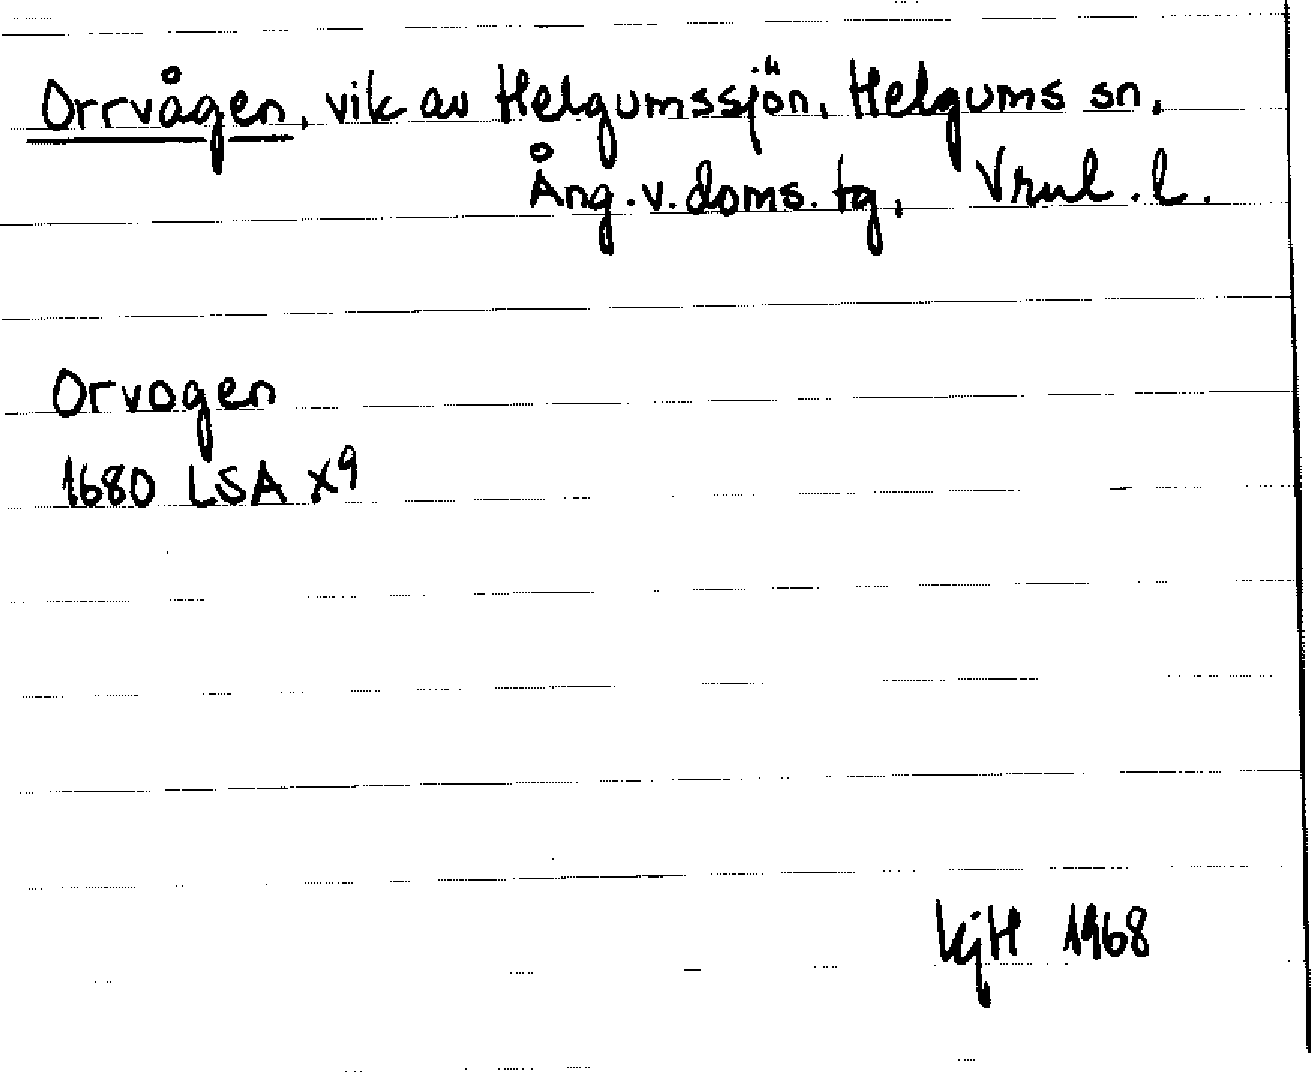 Orrvågen, vik av Helgumssjön, Helgums sn,
Ång. v. doms. tg, Vrnl. l.
Orvogen
1680 LSA X9
KjH 1968